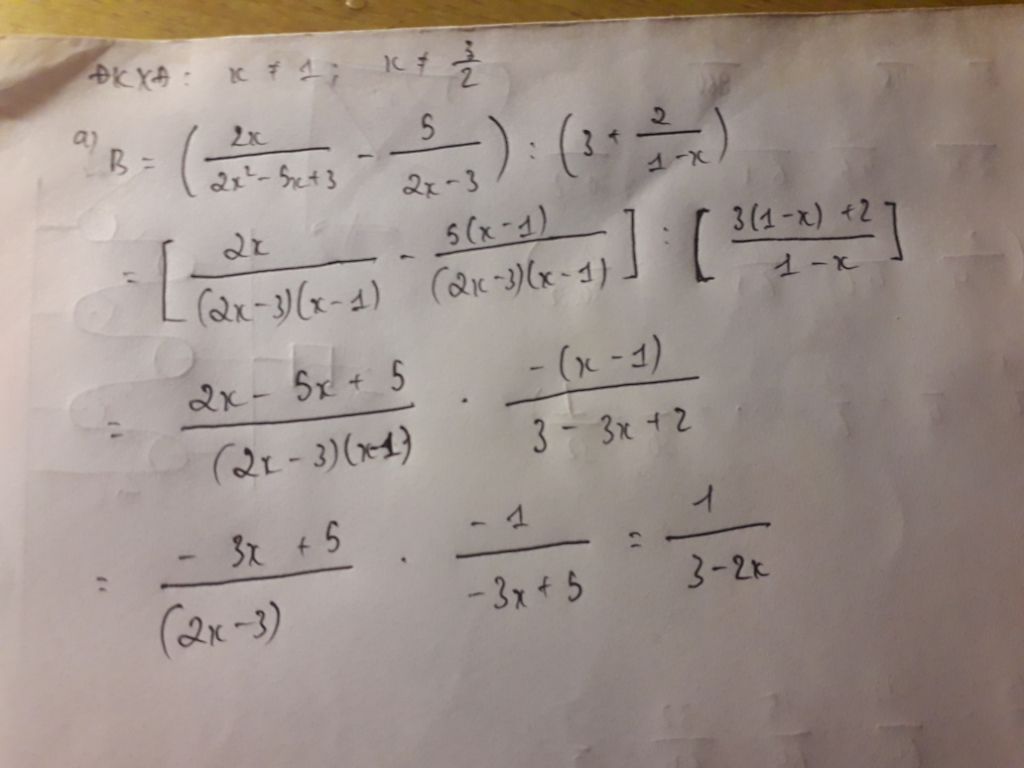 ĐKXĐ: x ≠ 1; x ≠ 3/2
a) B = (2x/(2x² - 5x + 3) - 5/(2x - 3)) : (3 + 2/(1 - x))
= [2x/((2x - 3)(x - 1)) - 5(x - 1)/((2x - 3)(x - 1))] : [(3(1 - x) + 2)/(1 - x)]
= (2x - 5x + 5)/((2x - 3)(x - 1)) . (-(x - 1))/(3 - 3x + 2)
= (-3x + 5)/((2x - 3)) . (-1)/(-3x + 5) = 1/(3 - 2x)